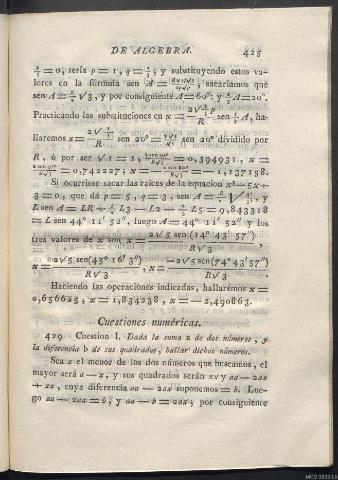 DE ALGEBRA. 425
= 0; sería p = 1, q = 1/3; y substituyendo estos va-
lores en la fórmula sen A = sacaríamos que
sen A = √3, y por consiguiente A = 60°; y 1/3 A = 20°.
Practicando las substituciones en x = sen 1/3 A, ha-
llaremos x = sen 20° sen 20° dividido por
R, ó por ser √1 = 1, = 0,394931, x =
= 0,742227; x = = — 1,137158.
Si ocurriese sacar las raices de la equacion x³ — 5x +
3 = 0, que dá p = 5, q = 3, sen A = y
L sen A = LR + L3 — L2 — L5 = 9,843318
= L sen 44° 11′ 52″, luego A = 44° 11′ 52″ y los
tres valores de x son x = 2√5 sen (14° 43′ 57″) / R√3 ,
x = 2√5 sen(45° 16′ 3″) / R√3 , x = —2√5 sen (74° 43′ 57″) / R√3 .
Haciendo las operaciones indicadas, hallarémos x =
0,656625, x = 1,834238, x = — 2,490863.
Cuestiones numéricas.
429 Cuestion I. Dada la suma a de dos números, y
la diferencia b de sus quadrados, hallar dichos números.
Sea x el menor de los dos números que buscamos, el
mayor será a — x, y sus quadrados serán xx y aa — 2ax
+ xx, cuya diferencia aa — 2ax suponemos = b. Lue-
go aa — 2ax = b, y aa — b = 2ax; por consiguiente
MCD 2022-L5